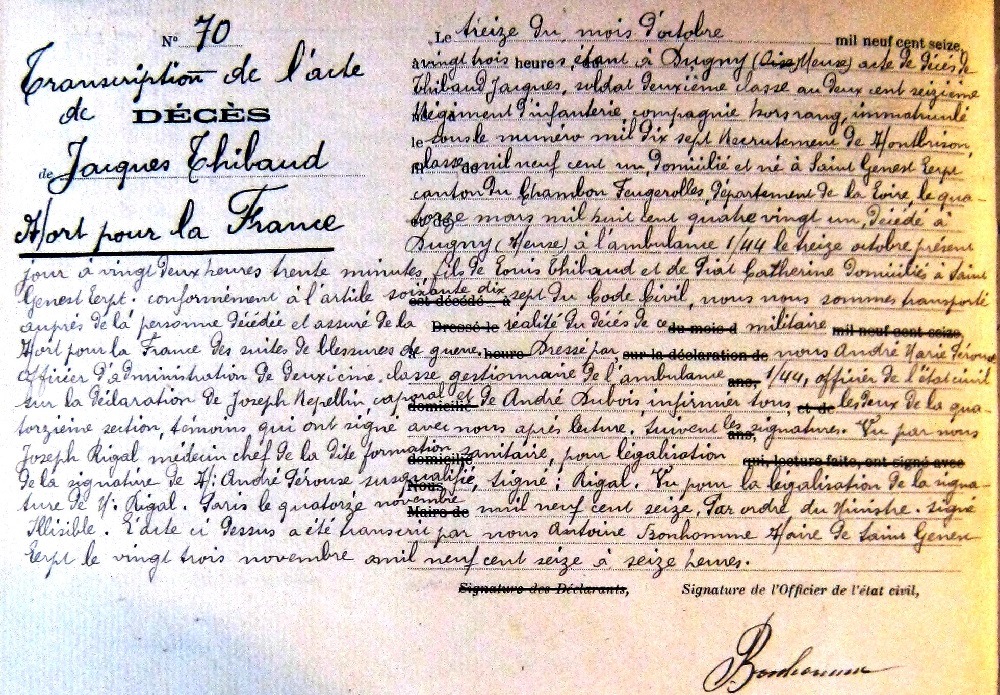 N° 70
Transcription de l'acte
de DÉCÈS
de Jacques Thibaud
Mort pour la France
Le treize du mois d'octobre mil neuf cent seize,
à vingt trois heures, étant à Dugny (Oise Meuse) acte de décès de
Thibaud Jacques, soldat deuxième classe au deux cent seizième
Régiment d'infanterie compagnie hors rang, immatriculé
le sous le numéro mil dix sept Recrutement de Montbrison,
classe mil neuf cent un, domicilié et né à Saint Genest Lerpt
canton du Chambon Feugerolles, département de la Loire, le qua-
torze mars mil huit cent quatre vingt un, décédé à
Dugny (Meuse) à l'ambulance 1/44 le treize octobre présent
jour à vingt deux heures trente minutes, fils de Louis Thibaud et de Piat Catherine domiciliés à Saint
Genest Lerpt. conformément à l'article soixante dix est décédé à sept du Code Civil, nous nous sommes transporté
auprès de la personne décédée et assuré de la Dressé le réalité du décès de ce du mois d militaire mil neuf cent seize,
Mort pour la France des suites de blessures de guerre. heure Dressé par, sur la déclaration de nous André Marie Pérouse
Officier d'administration de deuxième classe gestionnaire de l'ambulance ans, 1/44, officier de l'état civil
sur la déclaration de Joseph Repellin, caporal et domicilié de André Dubois infirmier tous, et de les deux de la qua-
torzième section, témoins qui ont signé avec nous après lecture. Suivent les ans, signatures. Vu par nous
Joseph Rigal médecin chef de la dite formation domicilié sanitaire, pour légalisation qui, lecture faite, ont signé avec
de la signature de M: André Pérouse susqualifié, Nous, signé: Rigal. Vu pour la légalisation de la signa-
ture de M. Rigal. Paris le quatorze novembre Maire de mil neuf cent seize, Par ordre du Ministre. signé
Illisible. L'acte ci dessus a été transcrit par nous Antoine Bonhomme Maire de Saint Genest
Lerpt le vingt trois novembre mil neuf cent seize à seize heures.
Signature des Déclarants, Signature de l'Officier de l'état civil,
Bonhomme